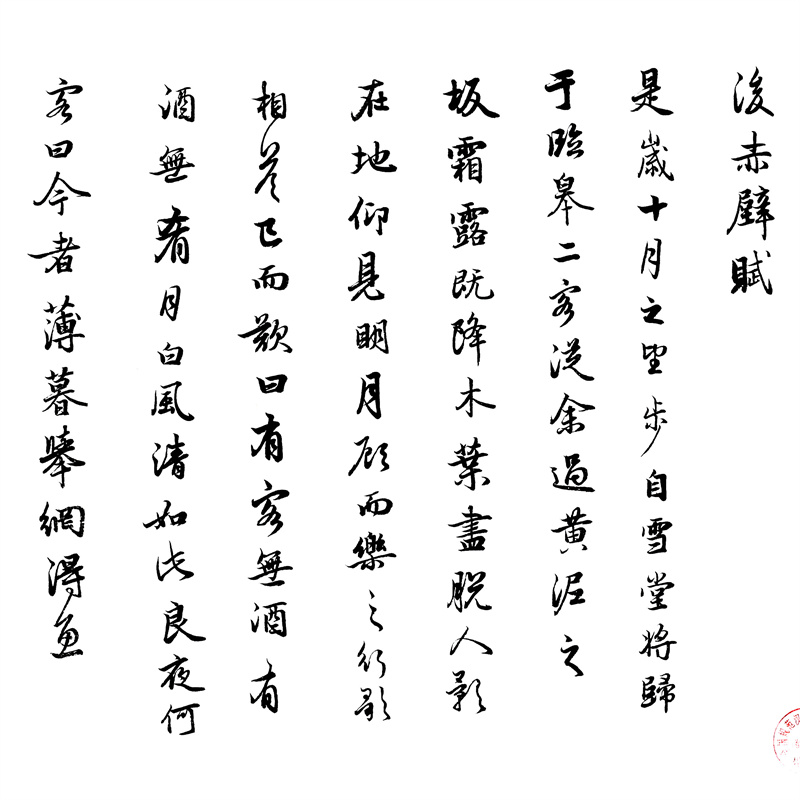 後赤壁賦
是歲十月之望步自雪堂將歸
于臨皋二客從余過黃泥之
坂霜露既降木葉盡脫人影
在地仰見明月顧而樂之行歌
相答已而歎曰有客無酒有
酒無肴月白風清如此良夜何
客曰今者薄暮舉網得魚